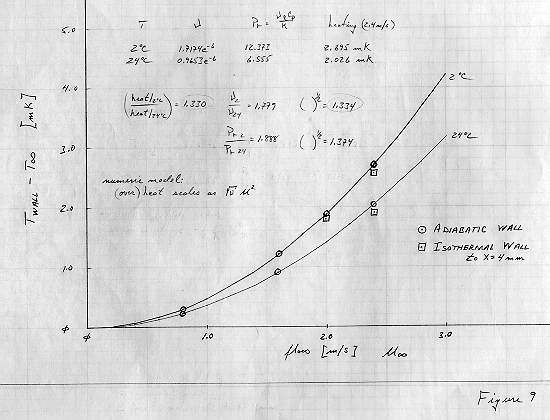 T ν Pr = νρCp/K heating (2.4 m/s)
5.0
2°C 1.7174e-6 12.373 2.695 mK
24°C 0.9653e-6 6.555 2.026 mK
4.0
2°C
(heat/2°C / heat/24°C) = 1.330 ν2/ν24 = 1.779 ( )^1/2 = 1.334
Pr 2/Pr 24 = 1.888 ( )^1/2 = 1.374
24°C
3.0
TWALL - T∞ [mK]
numeric model:
(over) heat scales as √ν u²
2.0
⊙ ADIABATIC WALL
⊡ ISOTHERMAL WALL
to X = 4 mm
1.0
φ
φ 1.0 2.0 3.0
flow [m/s] U∞
Figure 9